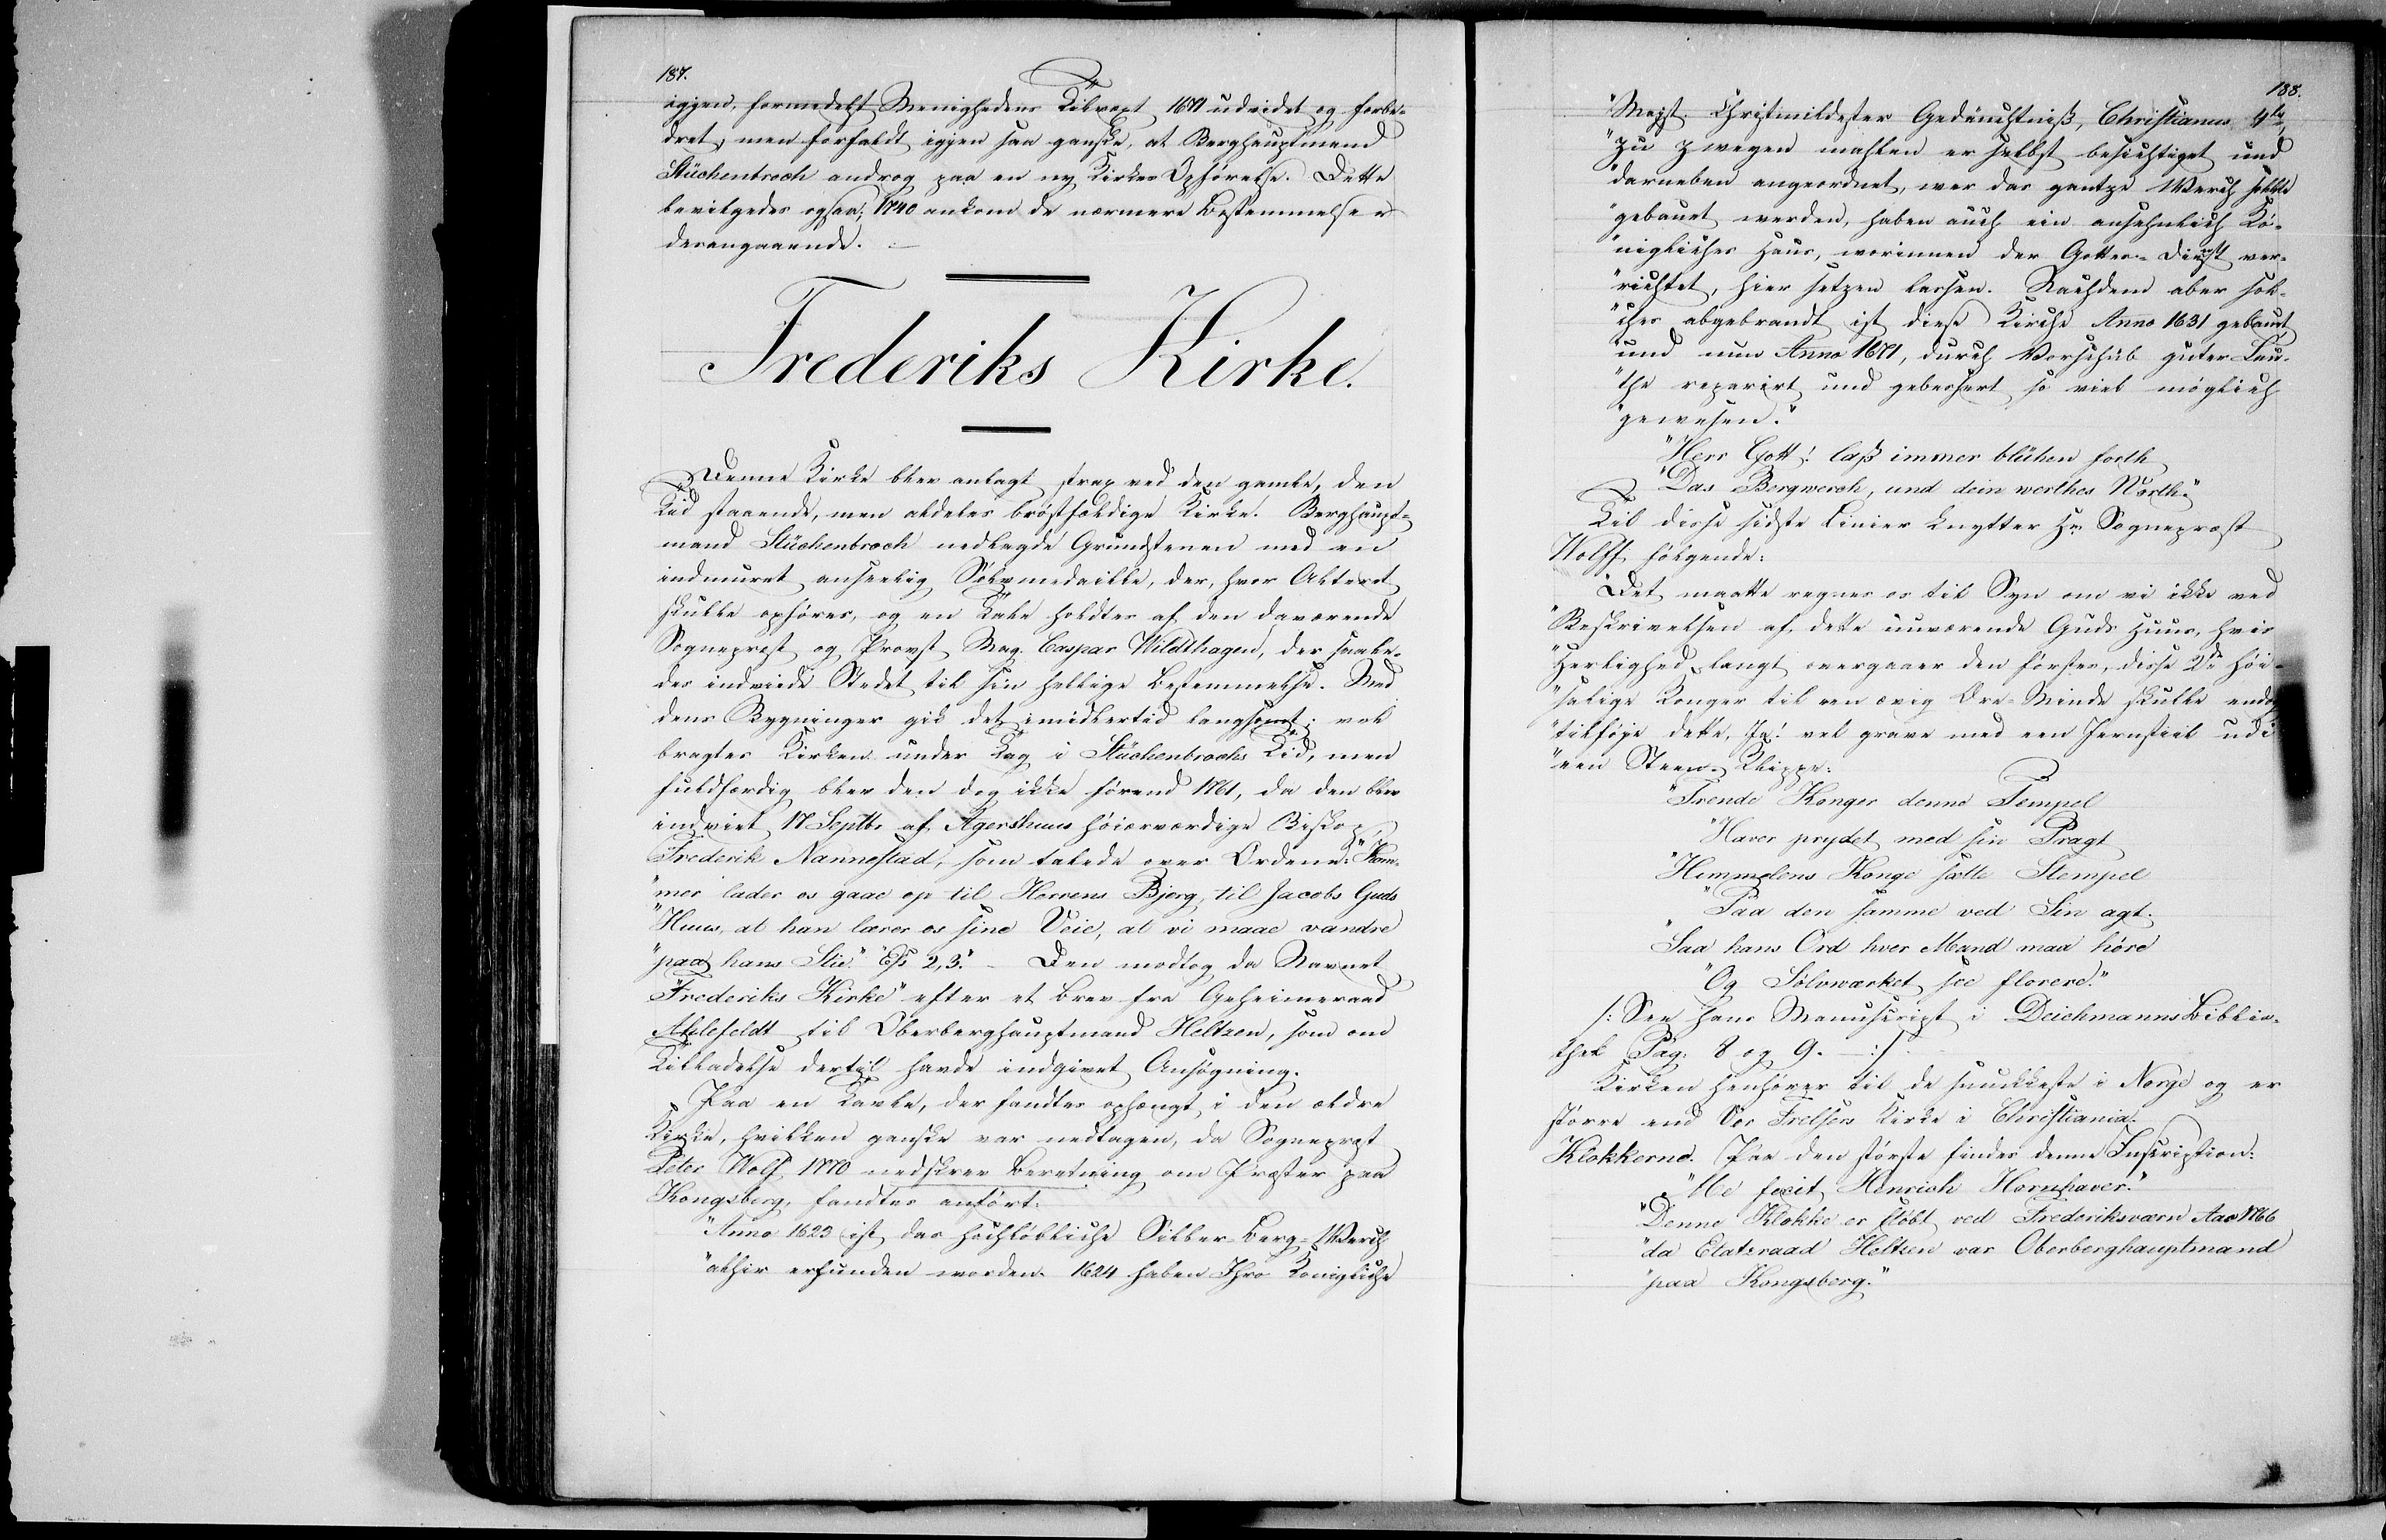 187.
igjen, formedelst Menighedens Tilvext 1671 udvidet og forbe-
dret, men forfaldt igjen saa ganske, at Berghauptmand
Stückenbroch androg paa en ny Kirkes Opførelse. Dette
bevilgedes ogsaa; 1740 ankom de nærmere Bestemmelser
desangaaende. —
Frederiks Kirke.
Denne Kirke blev anlagt strax ved den gamle, den
Tid staaende, men aldeles brøstfældige Kirke. Berghaupt-
mand Stückenbroch nedlagde Grundstenen med en
indmuret anseelig Sølvmedaille, der, hvor Alteret
skulle opføres, og en Tale holdtes af den daværende
Sogneprest og Provst Mag. Caspar Wildthagen, der saale-
des indviede Stedet til sin hellige Bestemmelse. Med
dens Bygninger gik det imidlertid langsomt; vel
bragtes Kirken under Tag i Stückenbrochs Tid, men
fuldfærdig blev den dog ikke førend 1761, da den blev
indviet 17 Septbr af Agershuus høiærværdige Biskop
Frederik Nannestad, som talede over Ordene: "Kom-
"mer lader os gaae op til Herrens Bjerg, til Jacobs Guds
"Huus, at han lærer os sine Veie, at vi maae vandre
"paa hans Stie." Es 2,3." – Den modtog da Navnet
"Frederiks Kirke" efter et Brev fra Geheimeraad
Ahlefeldt til Oberberghauptmand Heltzen, som om
Tilladelse dertil havde indgivet Ansøgning.
Paa en Tavle, der fandtes ophængt i den ældre
Kirke, hvilken ganske var nedtagen, da Sogneprest
Peter Wolf 1770 nedskrev Beretning om Præster paa
Kongsberg, fandtes anført:
"Anno 1623 ist das hochlöbliche Silber-Berg-Werch
"alhir erfunden worden. 1624 haben Ihro Königliche
188.
"Majst. Christmildester Gedäuchtniß, Christianus 4tus,
"zu zweyen mahlen er selbst besichtiget und
"darneben angeordnet, wer das gantze Werch sollte
"gebauet werden, haben auch ein ansehnlich Kö-
"nigliches Haus, worinnen der Gottes-Dienst ver-
"richtet, hier setzen lassen. Nachdem aber sol-
"ches abgebrandt ist diese Kirche Anno 1631 gebauet
"und nun Anno 1671, durch Vorschub guter Leu-
"the reparirt und gebessert so viel möglich
"gewesen."
"Herr Gott! laß immer blühen forth
"Das Bergwerch, und dein werthes Worth."
Til disse sidste Linier knytter Hr. Sogneprest
Wolff følgende:
"Det maatte regnes os til Syn om vi ikke ved
"Beskrivelsen af dette nuværende Guds Huus, hvis
"Herlighed langt overgaaer den førstes, disse 2de høi-
"salige Konger til een ævig Ære-Minde skulle endog
"tilføje dette, Ja! vel grave med een Jernstiil udi
"een Steen-Klippe:
"Trende Konger denne Tempel
"Haver prydet med sin Pragt
"Himmelens Konge sætte Stempel
"Paa den samme ved Sin agt.
"Saa hans Ord hver Mand maa høre
"Og Sølvværket see florere."
/: See hans Manuscript i Deichmanns Biblio-
thek Pag. 8 og 9. — :/
Kirken henhører til de smukkeste i Norge og er
større end Vor Frelsers Kirke i Christiania.
Klokkerne. Paa den største findes denne Inscription:
"Me fecit Henrich Hornhaver."
"Denne Klokke er støbt ved Frederiksværn Aar 1766
"da Etatsraad Heltzen var Oberberghauptmand
"paa Kongsberg."